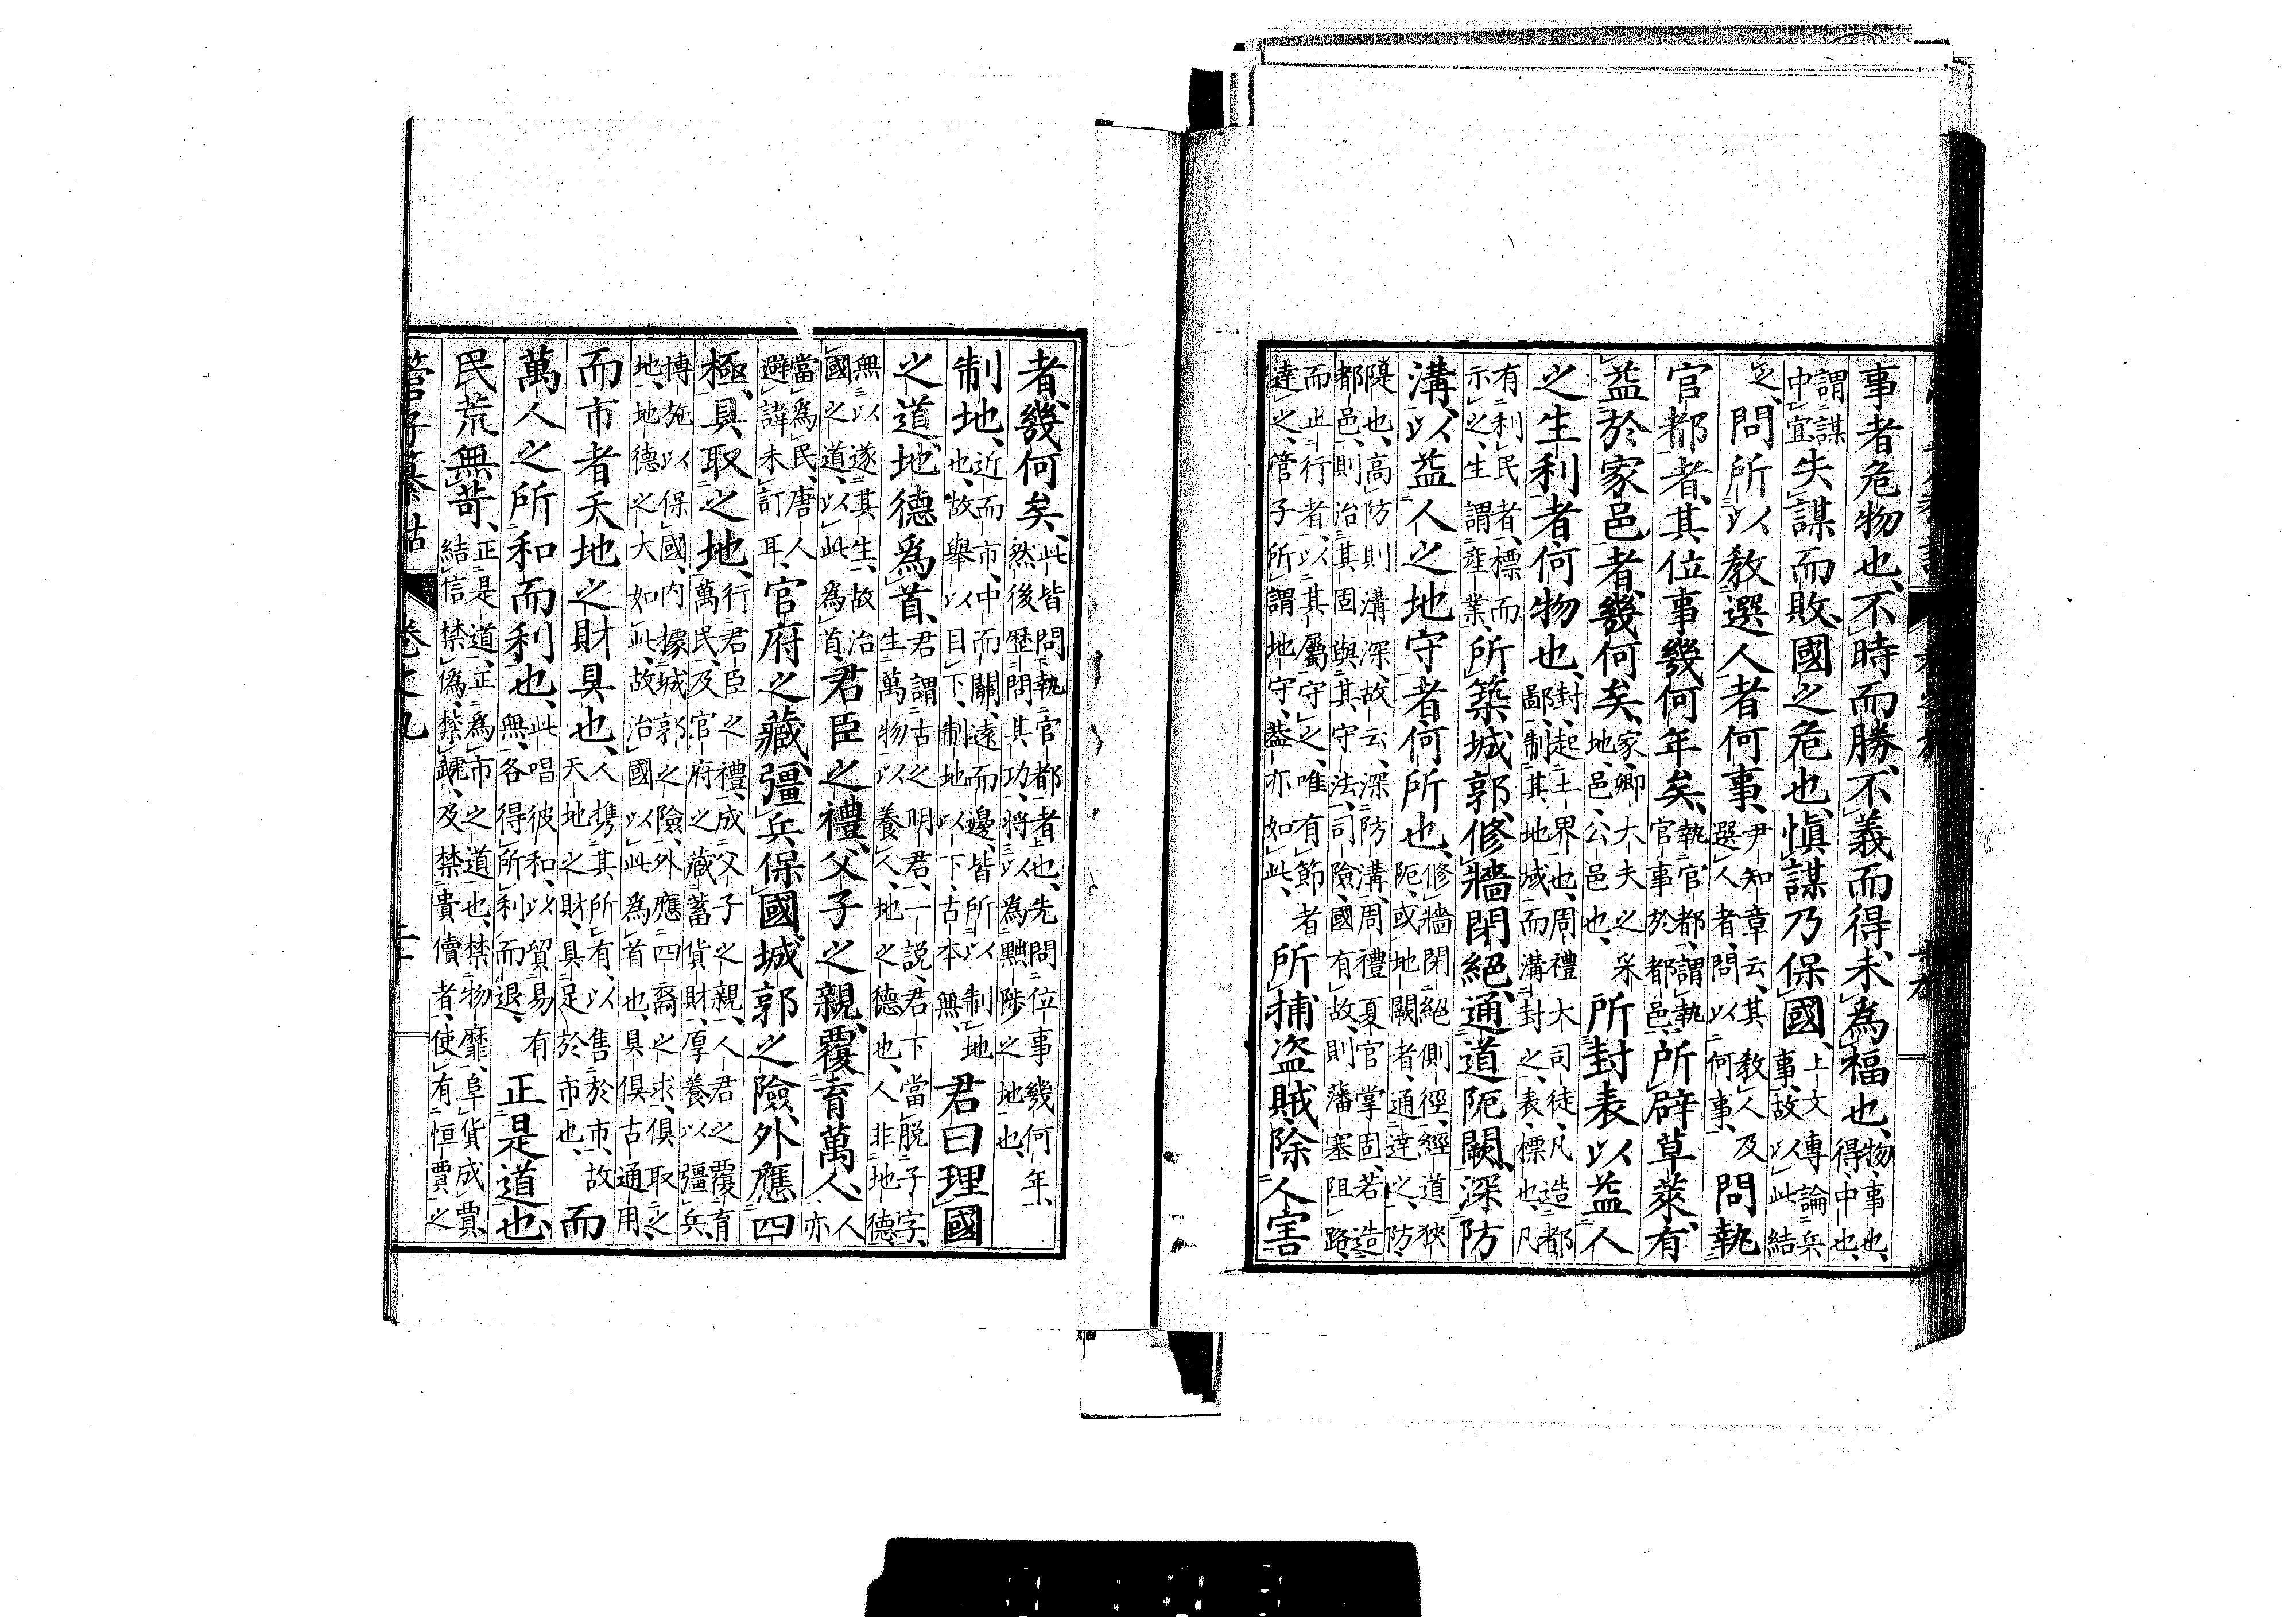 事者危物也、不時而勝、不義而得、未為福也、物、事也、得、中也、
謂謀中宜失謀而敗、國之危也、慎謀乃保國、上文傳論兵事、故以此結
之、問所以教選人者何事、尹知章云、其教人及選人者、問以何事、問執
官都者、其位事幾何年矣、執官都、謂執官事於都邑、所辟草萊、有
益於家邑者、幾何矣、家、卿大夫之采地、邑、公邑也、所封表以益人
之生利者、何物也、封、起土界也、周禮大司徒、凡造都鄙、制其地域、而溝封之、表、標也、凡
有利民者、標而示之、生謂產業、所築城郭、修牆閉絕、通道阨闕、深防
溝、以益人之地守者、何所也、修牆閉絕側徑、經道狹阨、或地闕者、通達之、防、
隄也、高防則溝深、故云、深防溝、周禮夏官掌固、若造都邑、則治其固與其守法、司險、國有故、則藩塞阻路、
而止行者、以其屬守之、唯有節者達之、管子所謂地守、蓋亦如此、所捕盜賊、除人害
者、幾何矣、此皆問執官都者也、先問位事幾何年、然後歷問其功、將以為黜陟之地也、
制地、近而市中、而關、遠而邊、皆所以制地也、故舉以目下、制地以下、古本無、君曰、理國
之道、地德為首、君謂古之明君、一說、君下當脫子字、生萬物以養人、地之德也、人非地德、
無以遂其生、故治國之道、以此為首、君臣之禮、父子之親、覆育萬人、人亦
當為民、唐人避諱未訂耳、官府之藏、彊兵保國、城郭之險、外應四
極、具取之地、行君臣之禮、成父子之親、人君之覆育萬民、及官府之藏、蓄貨財、厚養以彊兵、
博施以保國、內據城郭之險、外應四裔之求、俱取之地、地德之大如此、故治國以此為首也、具俱古通用、
而市者天地之財具也、人携其所有、以售於市、故天地之財、具足於市也、而
萬人之所和而利也、此唱彼和、以貿易有無、各得所利而退、正是道也、
民荒無苛、正是道、正為市之道也、禁物靡、阜貨成賈、結信禁偽、禁虣、及禁貴儥者、使有恒賈之
管子纂詁 卷之九 二十